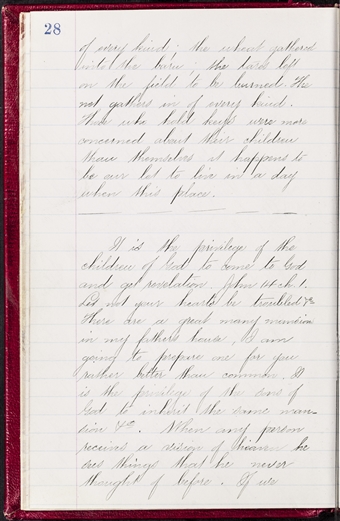 28
of every kind; the wheat gathered
into the barn; the tares left
in the field to be burned. The
net gathers in of every kind.
Those who hold keys were more
concerned about their children
than themselves it happens to
be our lot to live in a day
when this place.
It is the privilege of the
children of God to come to God
and get revelation. John 14 ch. 1.
Let not your hearts be troubled &c
There are a great many mansions
in my fathers house, I am
going to prepare one for you
rather better than common. It
is the privilege of the sons of
God to inherit the same man-
sion &c. When any person
receives a vision of heaven he
sees things that he never
thought of before. If we